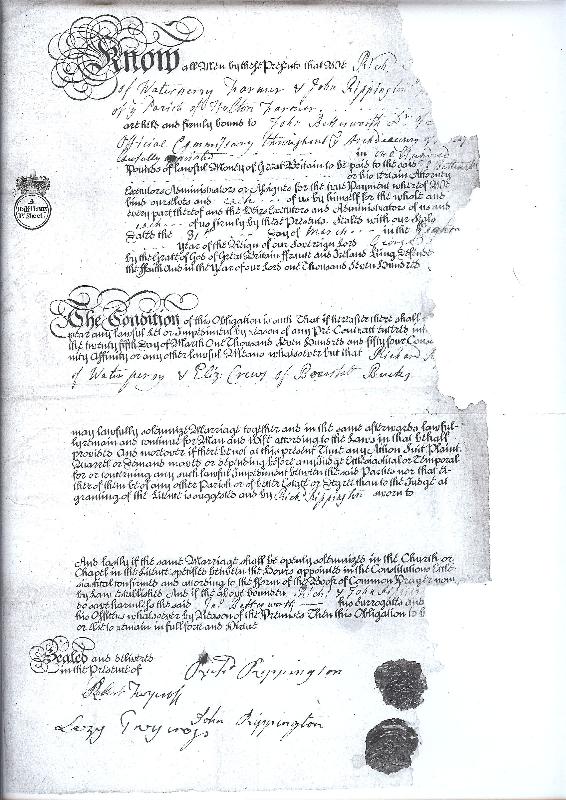 Know all Men by these Presents that We Rich
of Waterperry Farmer & John Rippington
of ye Parish of Farmer
are held and firmly bound to John Bettesworth Dr
Official Commissary throughout ye Archdeaconry of
lawfully in one Hundred
Pounds of lawful Money of Great Britain to be paid to the said
or his certain Attorney
Executors Administrators or Assigns for the true Payment whereof We
bind ourselves and each of us by himself for the whole and
every part thereof and the Heirs Executors and Administrators of us and
each of us firmly by these Presents Sealed with our Seals
Dated the 31st day of March in the
Year of the Reign of our Sovereign Lord George
by the Grace of God of Great Britain ffrance and Ireland King Defender
the ffaith and in the Year of our Lord one Thousand Seven Hundred
The Condition of this Obligation is such That if hereafter there shall
pear any lawful Let or Impediment by reason of any Pre Contract entered
the twenty fifth Day of March One Thousand Seven Hundred and fifty four
nity Affinity or any other lawful Means whatsoever but that Richard
of Waterperry & Eliz: Crews of Boarstall Bucks
may lawfully solemnize Marriage together and in the same afterwards lawful-
ly remain and continue for Man and Wife according to the Laws in that behalf
provided And moreover if there be not at this present Time any Action Suit Plaint
Quarrel or Demand moved or depending before any Judge Ecclesiastical or Temporal
for or concerning any such lawful Impediment between the said Parties nor that ei-
ther of them be of any other Parish or of better Estate or Degree than to the Judge at
granting of the Licence is suggested and by Richd Rippington sworn to
And lastly if the same Marriage shall be openly solemnized in the Church or
Chapel in the Licence specified between the Hours appointed in the Constitutions Eccle-
siastical confirmed and according to the fform of the Book of Common Prayer now
by Law Established And if the above bounden Richd & John
do save harmless the said Jno Bettesworth his Surrogates and
his Officers whatsoever by Reason of the Premises Then this Obligation to
or Else to remain in full force and Virtue
Sealed and delivered
in the Presence of
Richd Rippington
Robert
John Rippington